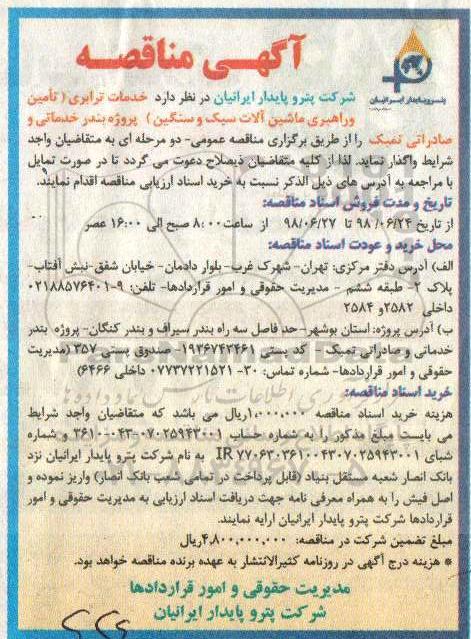 آگهی مناقصه
پترو پایدار ایرانیان
شرکت پترو پایدار ایرانیان در نظر دارد خدمات ترابری (تأمین
وراهبری ماشین آلات سبک و سنگین) پروژه بندر خدماتی و
صادراتی تمبک را از طریق برگزاری مناقصه عمومی- دو مرحله ای به متقاضیان واجد
شرایط واگذار نماید. لذا از کلیه متقاضیان ذیصلاح دعوت می گردد تا در صورت تمایل
با مراجعه به آدرس های ذیل الذکر نسبت به خرید اسناد ارزیابی مناقصه اقدام نمایند.
تاریخ و مدت فروش اسناد مناقصه:
از تاریخ ۹۸/۰۶/۲۴ تا ۹۸/۰۶/۲۷ از ساعت۸:۰۰ صبح الی ۱۶:۰۰ عصر
محل خرید و عودت اسناد مناقصه:
الف) آدرس دفتر مرکزی: تهران- شهرک غرب- بلوار دادمان- خیابان شفق-نبش آفتاب-
پلاک ۲- طبقه ششم - مدیریت حقوقی و امور قراردادها- تلفن: ۹-۰۲۱۸۸۵۷۶۴۰۱
داخلی ۲۵۸۲و ۲۵۸۴
ب) آدرس پروژه: استان بوشهر-حد فاصل سه راه بندر سیراف و بندر کنگان- پروژه بندر
خدماتی و صادراتی تمبک - کد پستی ۱۹۳۶۷۴۳۴۶۱- صندوق پستی ۳۵۷ (مدیریت
حقوقی و امور قراردادها- شماره تماس: ۳۰- ۰۷۷۳۷۲۲۱۵۲۱ داخلی ۶۴۶۶)
خرید اسناد مناقصه:
هزینه خرید اسناد مناقصه ۱,۰۰۰,۰۰۰ریال می باشد که متقاضیان واجد شرایط
می بایست مبلغ مذکور را به شماره حساب ۰۷۰۲۵۹۴۳۰۰۱-۴۳-۳۶۱۰۰ و شماره
شبای IR ۷۷۰۶۳۰۳۶۱۰۰۴۳۰۷۰۲۵۹۴۳۰۰۱ به نام شرکت پترو پایدار ایرانیان نزد
بانک انصار شعبه مستقل بنیاد (قابل پرداخت در تمامی شعب بانک انصار) واریز نموده و
اصل فیش را به همراه معرفی نامه جهت دریافت اسناد ارزیابی به مدیریت حقوقی و امور
قراردادها شرکت پترو پایدار ایرانیان ارایه نمایند.
مبلغ تضمین شرکت در مناقصه: ۴,۸۰۰,۰۰۰,۰۰۰ریال
* هزینه درج آگهی در روزنامه کثیرالانتشار به عهده برنده مناقصه خواهد بود.
مدیریت حقوقی و امور قراردادها
شرکت پترو پایدار ایرانیان